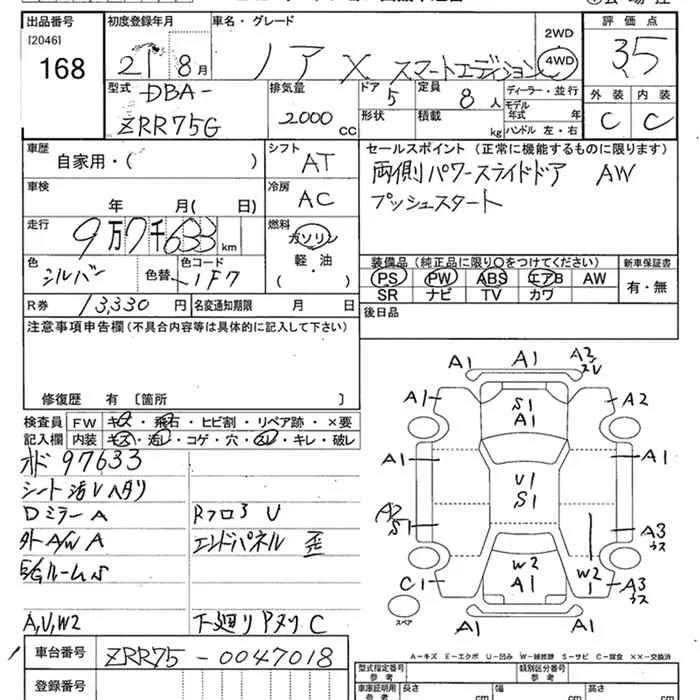 出品番号 初度登録年月 車名・グレード 評価点
[2046]
168
21 8月
ノア X スマートエディション
2WD
4WD
3.5
型式 DBA-
ZRR75G
排気量
2000 cc
ドア 5
定員 8人
ディーラー・並行
形状
積載 kg
モデル年式 年
ハンドル 左・右
外装 内装
C C
車歴
自家用・( )
シフト
AT
セールスポイント(正常に機能するものに限ります)
両側パワースライドドア AW
プッシュスタート
車検
年 月( 日)
冷房
AC
走行
9万7千633km
燃料
ガソリン
軽・油
( )
色
シルバー
色替
色コード
1F7
装備品(純正品に限り○をつけてください) 新車保証書
PS PW ABS エアB AW
SR ナビ TV カワ
有・無
R券 13,330円
名変通知期限 月 日
後日品
注意事項申告欄(不具合内容等は具体的に記入して下さい)
修復歴 有 〔箇所 〕
検査員 FW キズ・飛石・ヒビ割・リペア跡・×要
記入欄 内装 キズ・汚レ・コゲ・穴・スレ・キレ・破レ
オド 97633
シート汚レヘタリ
Dミラー A
外A/W A
Rフロア U
エンドパネル 歪
A,U,W2
下廻りPヌリ C
A1 A1 A2
A1 S1 A1 A2
A1 U1 S1 A1
A2 S1 A3
C1 W2 A1 W2 A3
A1 A1
スペア
A-キズ E-エクボ U-凹み W-補修跡 S-サビ C-腐食 ××-交換済
車台番号 ZRR75-0047018
登録番号
型式指定番号 参考
類別区分番号 参考
車庫証明用 参考
長さ cm
幅 cm
高さ cm